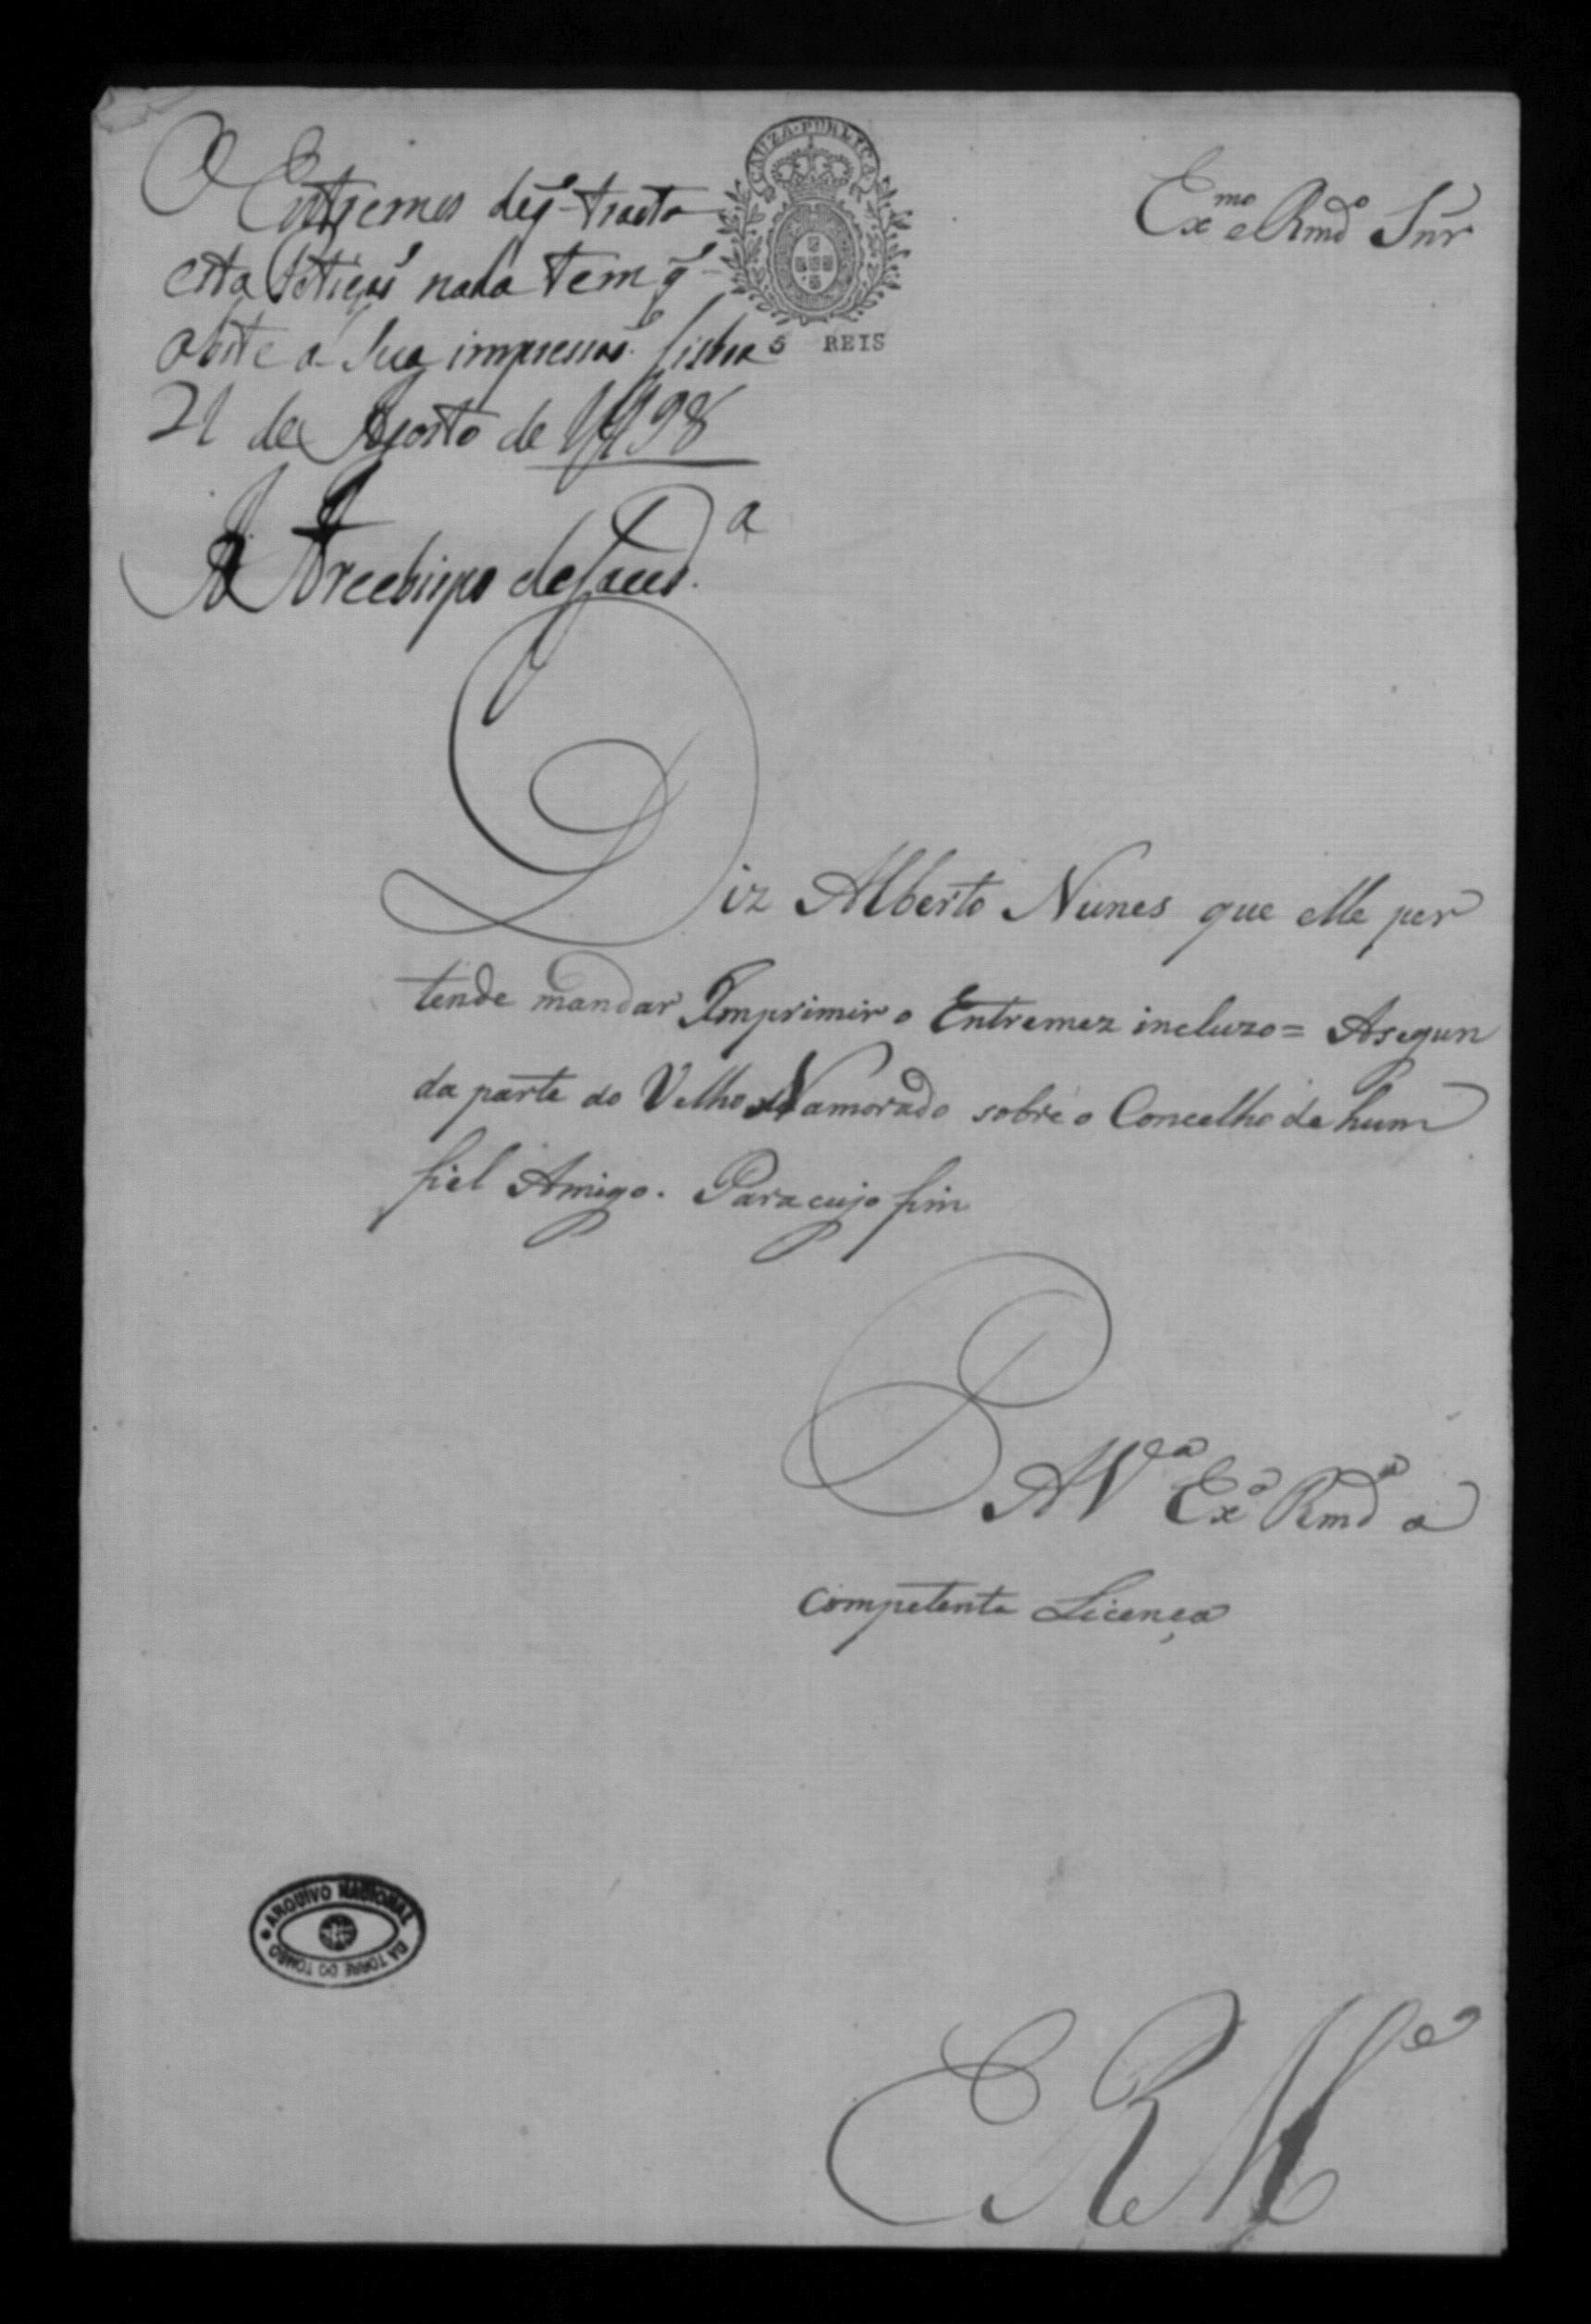 O Entremes deq̃ tracta
esta Petiçaõ nada tem q̃
obste a Sua impressaõ. Lisboa
21 de Agosto de 1798
Arcebispo de Laced.a
CAUZA PUBLICA
5 REIS
Exmo e Rmdo Snr
Diz Alberto Nunes que elle per
tende mandar Imprimir o Entremez incluzo = Asegun
da parte do Velho Namorado sobre o Concelho de hum
fiel Amigo. Para cujo fim
P A Va Exa Rmda a
competente Licença
ARQUIVO NACIONAL
DA TORRE DO TOMBO
E R Me